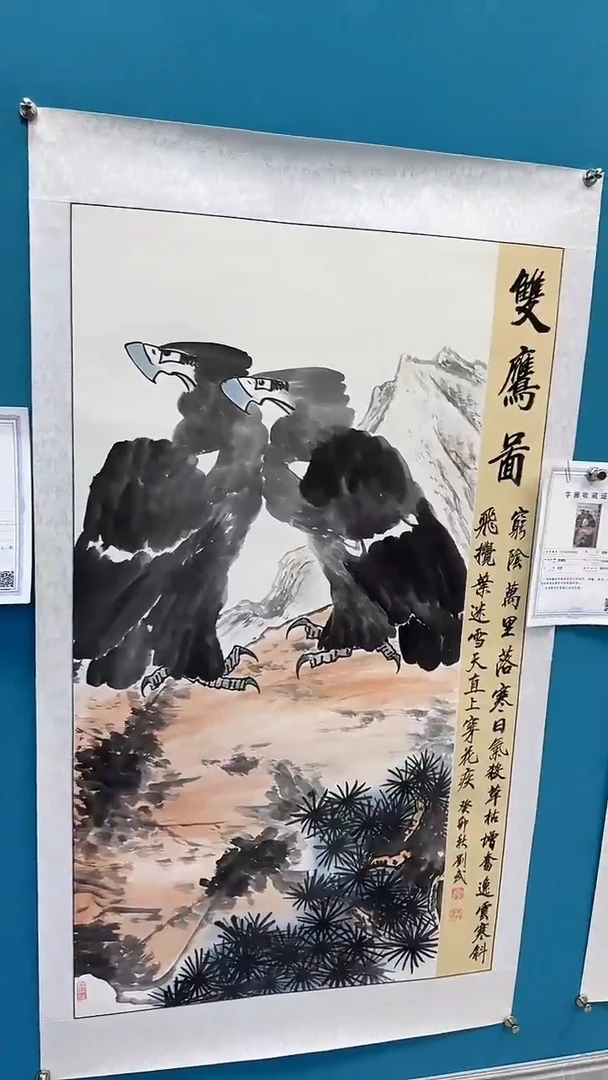 雙鷹圖
窮陰萬里落寒日氣殺草枯增奮逸雲寒斜
飛攪葉迷雪天直上穿花疾
癸卯秋劉武
字画收藏证